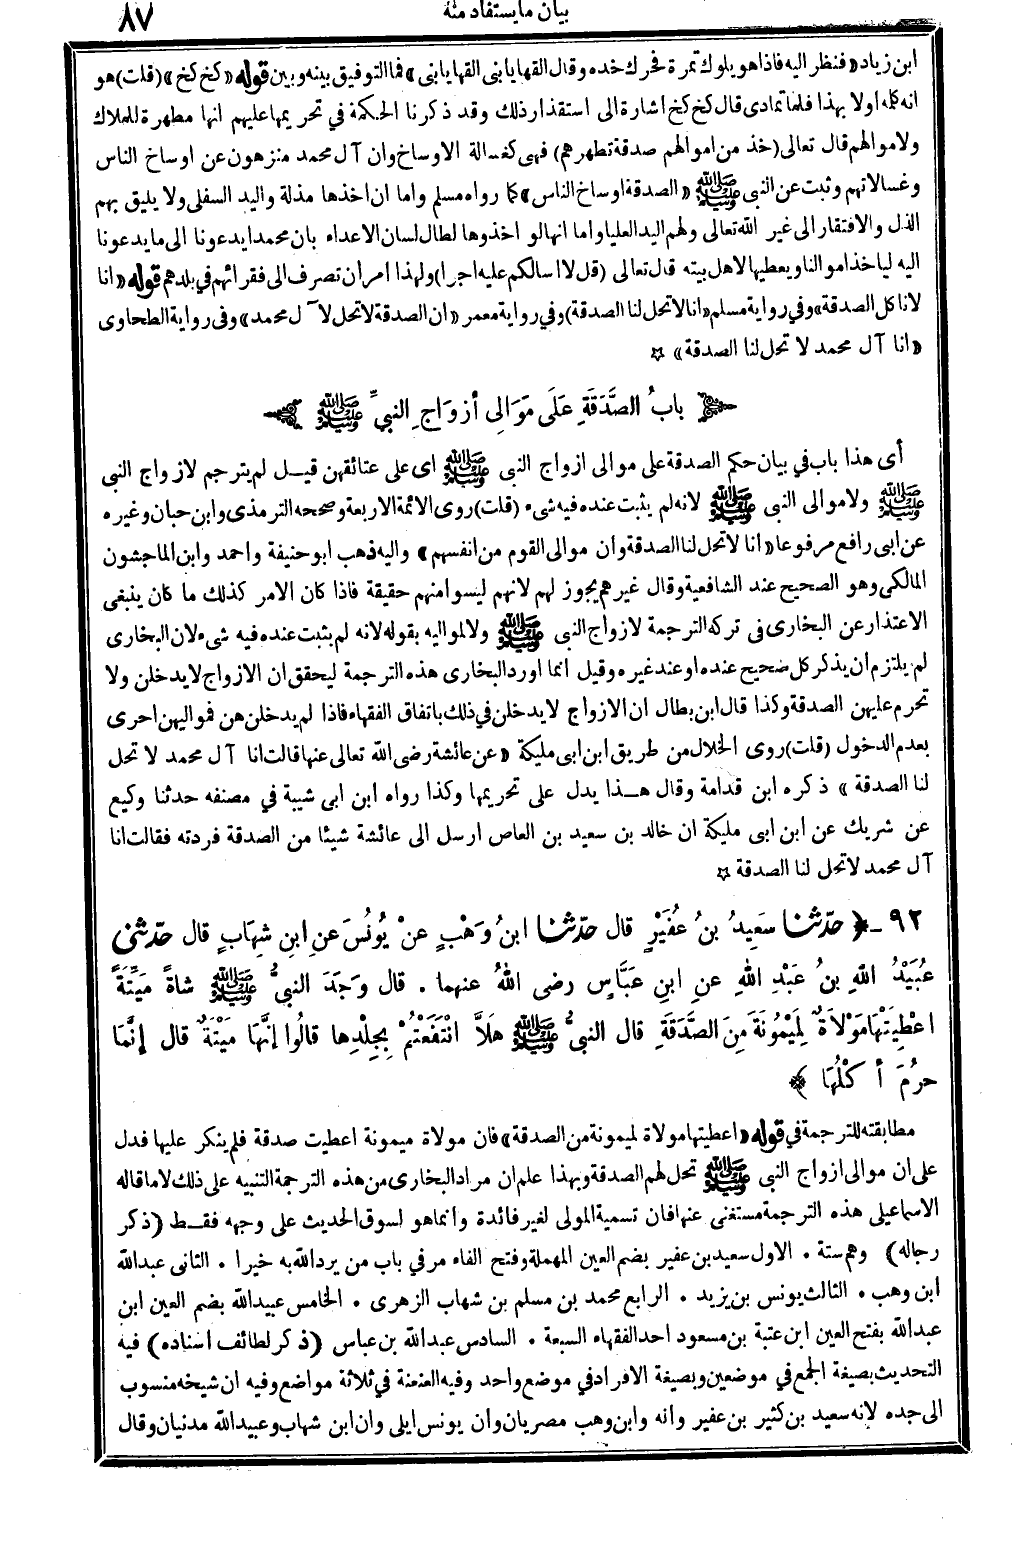 بيان ما يستفاد منه ٨٧
ابن زياد «فنظر اليه فاذا هو يلوك تمرة فحرك خده وقال القها يا بنى القها يا بنى» فما التوفيق بينه وبين قوله «كخ كخ» (قلت) هو
انه كله اولا بهذا فلما تمادى قال كخ كخ اشارة الى استقذار ذلك وقد ذكرنا الحكمة في تحريمها عليهم انها مطهرة للملاك
ولاموالهم قال تعالى (خذ من اموالهم صدقة تطهرهم) فهى كغسالة الاوساخ وان آل محمد منزهون عن اوساخ الناس
وغسالاتهم وثبت عن النبى ﷺ «الصدقة اوساخ الناس» كما رواه مسلم واما ان اخذها مذلة واليد السفلى ولا يليق بهم
الذل والافتقار الى غير الله تعالى ولهم اليد العليا واما انها لو اخذوها لطال لسان الاعداء بان محمدا يدعونا الى ما يدعونا
اليه ليأخذ اموالنا ويعطيها لاهل بيته قال تعالى (قل لا اسالكم عليه اجرا) ولهذا امر ان تصرف الى فقرائهم في بلدهم قوله «انا
لا نا كل الصدقة» وفي رواية مسلم «انا لا تحل لنا الصدقة) وفي رواية معمر «ان الصدقة لا تحل لآ ل محمد» وفى رواية الطحاوى
«انا آل محمد لا تحل لنا الصدقة» ☆
﴿ بابُ الصَّدَقَةِ عَلَى مَوَالِى أزوَاجِ النبيِّ ﷺ ﴾
أى هذا باب في بيان حكم الصدقة على موالى ازواج النبى ﷺ اى على عتائقهن قيـل لم يترجم لازواج النبى
ﷺ ولا موالى النبى ﷺ لانه لم يثبت عنده فيه شىء (قلت) روى الائمة الاربعة وصححه الترمذى وابن حبان وغيره
عن ابى رافع مرفوعا «انا لا تحل لنا الصدقة وان موالى القوم من انفسهم» واليه ذهب ابو حنيفة واحمد وابن الماجشون
المالكى وهو الصحيح عند الشافعية وقال غيرهم يجوز لهم لانهم ليسوا منهم حقيقة فاذا كان الامر كذلك ما كان ينبغى
الاعتذار عن البخارى فى تركه الترجمة لازواج النبى ﷺ ولا لمواليه بقوله لانه لم يثبت عنده فيه شىء لان البخارى
لم يلتزم ان يذكر كل صحيح عنده او عند غيره وقيل انما اورد البخارى هذه الترجمة ليحقق ان الازواج لا يدخلن ولا
تحرم عليهن الصدقة وكذا قال ابن بطال ان الازواج لا يدخلن في ذلك باتفاق الفقهاء فاذا لم يدخلن هن فمواليهن احرى
بعدم الدخول (قلت) روى الخلال من طريق ابن ابى مليكة «عن عائشة رضى الله تعالى عنها قالت انا آل محمد لا تحل
لنا الصدقة» ذكره ابن قدامة وقال هـذا يدل على تحريمها وكذا رواه ابن ابى شيبة في مصنفه حدثنا وكيع
عن شريك عن ابن ابى مليكة ان خالد بن سعيد بن العاص ارسل الى عائشة شيئا من الصدقة فردته فقالت انا
آل محمد لا تحل لنا الصدقة ☆
٩٢ـ ﴿ حدّثنا سَعِيدُ بنُ عُفَيْرٍ قال حدّثنا ابنُ وَهْبٍ عنْ يُونُسَ عنِ ابنِ شِهَابٍ قال حدّثنى
عُبَيْدُ اللهِ بنُ عَبْدِ اللهِ عنِ ابنِ عَبَّاسٍ رضى اللهُ عنهما . قال وَجَدَ النبىُّ ﷺ شاةً مَيِّتَةً
اعْطِيَتْهَا مَوْلَاةٌ لِمَيْمُونَةَ مِنَ الصَّدَقَةِ قال النبىُّ ﷺ هَلَّا انْتَفَعْتُمْ بِجِلْدِها قالُوا إنَّهَا مَيْتَةٌ قال إنَّمَا
حرُمَ أكْلُهَا ﴾
مطابقته للترجمة في قوله «اعطيتها مولاة لميمونة من الصدقة» فان مولاة ميمونة اعطيت صدقة فلم ينكر عليها فدل
على ان موالى ازواج النبى ﷺ تحل لهم الصدقة وبهذا علم ان مراد البخارى من هذه الترجمة التنبيه على ذلك لا ما قاله
الاسماعيلى هذه الترجمة مستغنى عنها فان تسمية المولى لغير فائدة وانما هو لسوق الحديث على وجهه فقـط (ذكر
رجاله) وهم ستة . الاول سعيد بن عفير بضم العين المهملة وفتح الفاء مر في باب من يرد الله به خيرا . الثانى عبدالله
ابن وهب . الثالث يونس بن يزيد . الرابع محمد بن مسلم بن شهاب الزهرى . الخامس عبيدالله بضم العين ابن
عبدالله بفتح العين ابن عتبة بن مسعود احد الفقهاء السبعة . السادس عبدالله بن عباس (ذكر لطائف اسناده) فيه
التحديث بصيغة الجمع في موضعين وبصيغة الافراد في موضع واحد وفيه العنعنة في ثلاثة مواضع وفيه ان شيخه منسوب
الى جده لانه سعيد بن كثير بن عفير وانه وابن وهب مصريان وان يونس ايلى وان ابن شهاب وعبيدالله مدنيان وقال